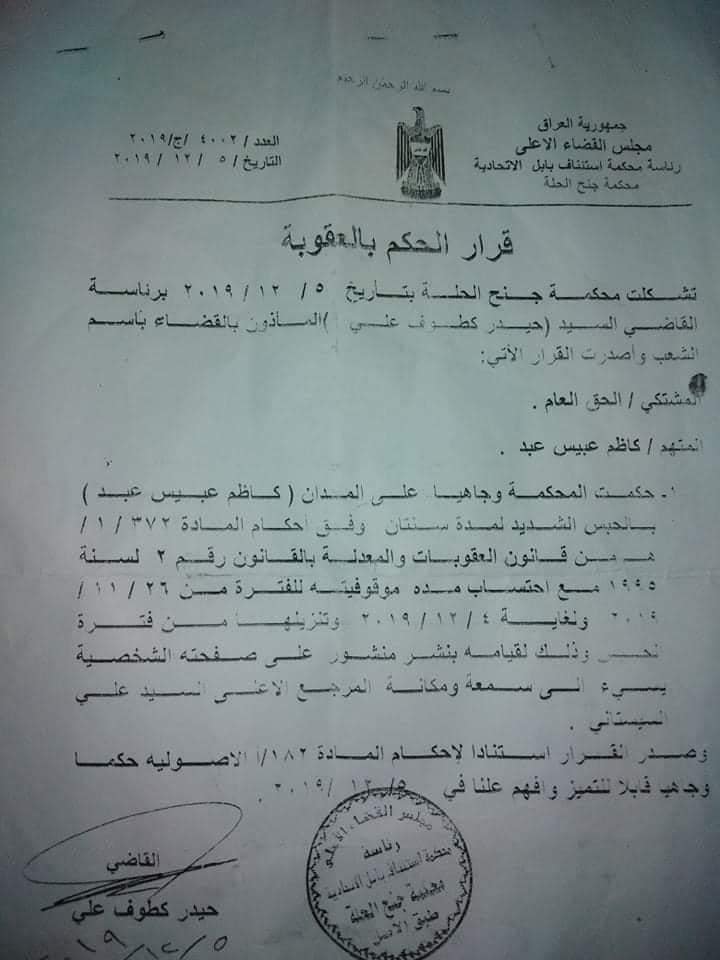 بسم الله الرحمن الرحيم
جمهورية العراق
مجلس القضاء الاعلى
رئاسة محكمة استئناف بابل الاتحادية
محكمة جنح الحلة
العدد / ٤٠٠٢ /ج/ ٢٠١٩
التاريخ / ٥ / ١٢ / ٢٠١٩
قرار الحكم بالعقوبة
تشكلت محكمة جنح الحلة بتاريخ ٥ / ١٢ / ٢٠١٩ برئاسة
القاضي السيد (حيدر كطوف علي )الماذون بالقضاء باسم
الشعب واصدرت القرار الآتي:
المشتكي / الحق العام .
المتهم / كاظم عبيس عبد .
١- حكمت المحكمة وجاهيا على المدان ( كاظم عبيس عبد )
بالحبس الشديد لمدة سنتان وفق احكام المادة ٣٧٢ / ١ /
هـ من قانون العقوبات والمعدلة بالقانون رقم ٢ لسنة
١٩٩٥ مع احتساب مده موقوفيته للفترة من ٢٦ / ١١ /
٢٠١٩ ولغاية ٤ / ١٢ / ٢٠١٩ وتنزيلها من فترة
الحبس وذلك لقيامه بنشر منشور على صفحته الشخصية
يسيء الى سمعة ومكانة المرجع الاعلى السيد علي
السيستاني .
وصدر القرار استنادا لاحكام المادة ١٨٢/أ الاصوليه حكما
وجاهيا قابلا للتميز وافهم علنا في ٥/ ١٢ /٢٠١٩ .
مجلس القضاء الاعلى
رئاسة
محكمة استئناف بابل الاتحادية
محكمة جنح الحلة
طبق الاصل
القاضي
حيدر كطوف علي
١٩/١٢/٥